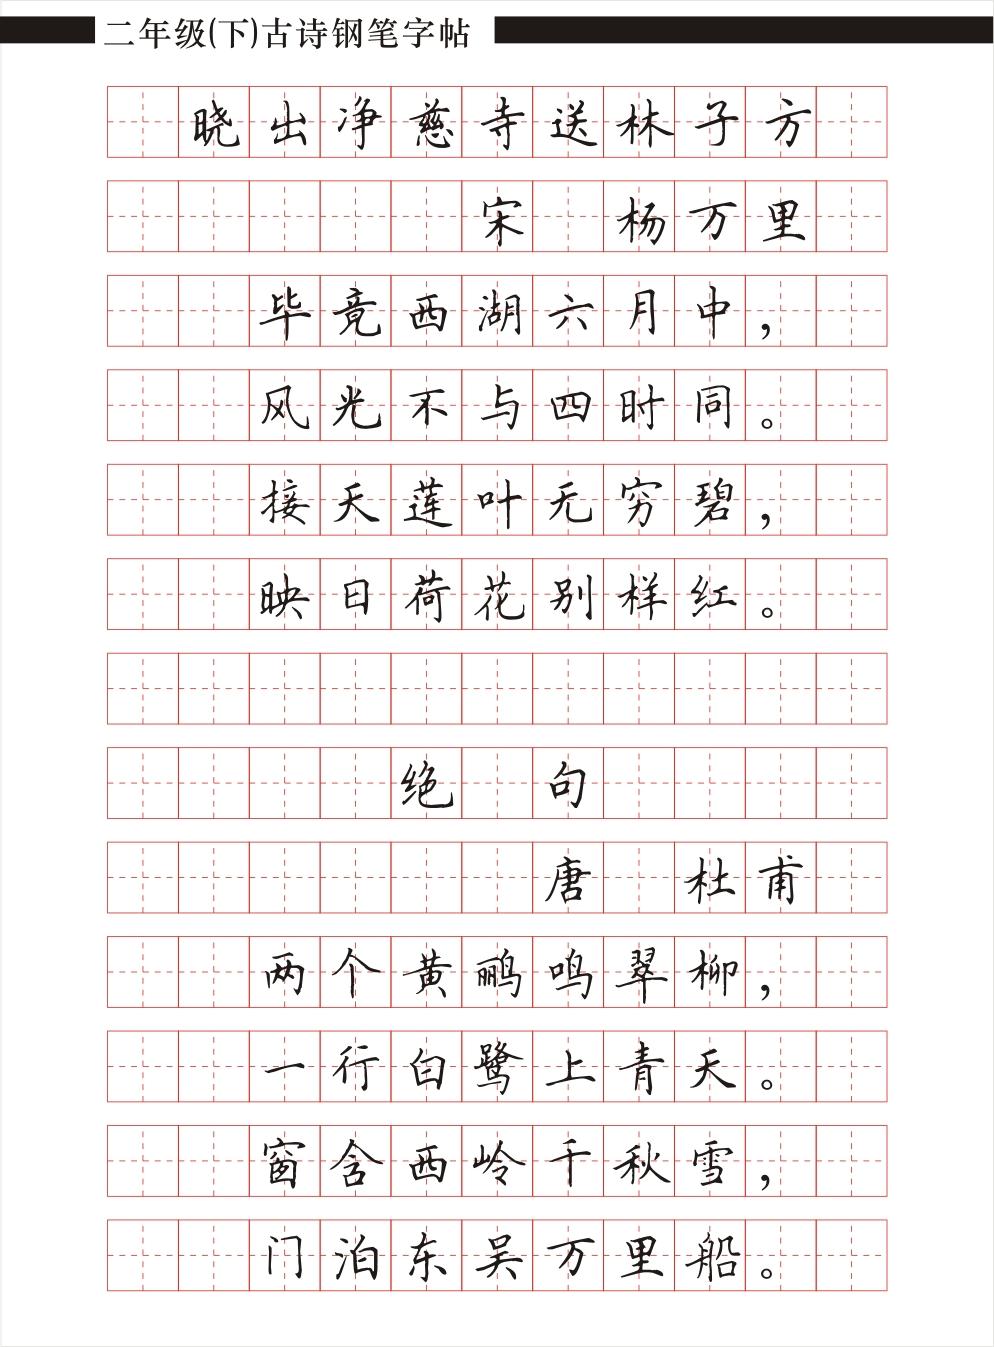 二年级(下)古诗钢笔字帖
晓出净慈寺送林子方
宋 杨万里
毕竟西湖六月中，
风光不与四时同。
接天莲叶无穷碧，
映日荷花别样红。
绝 句
唐 杜甫
两个黄鹂鸣翠柳，
一行白鹭上青天。
窗含西岭千秋雪，
门泊东吴万里船。